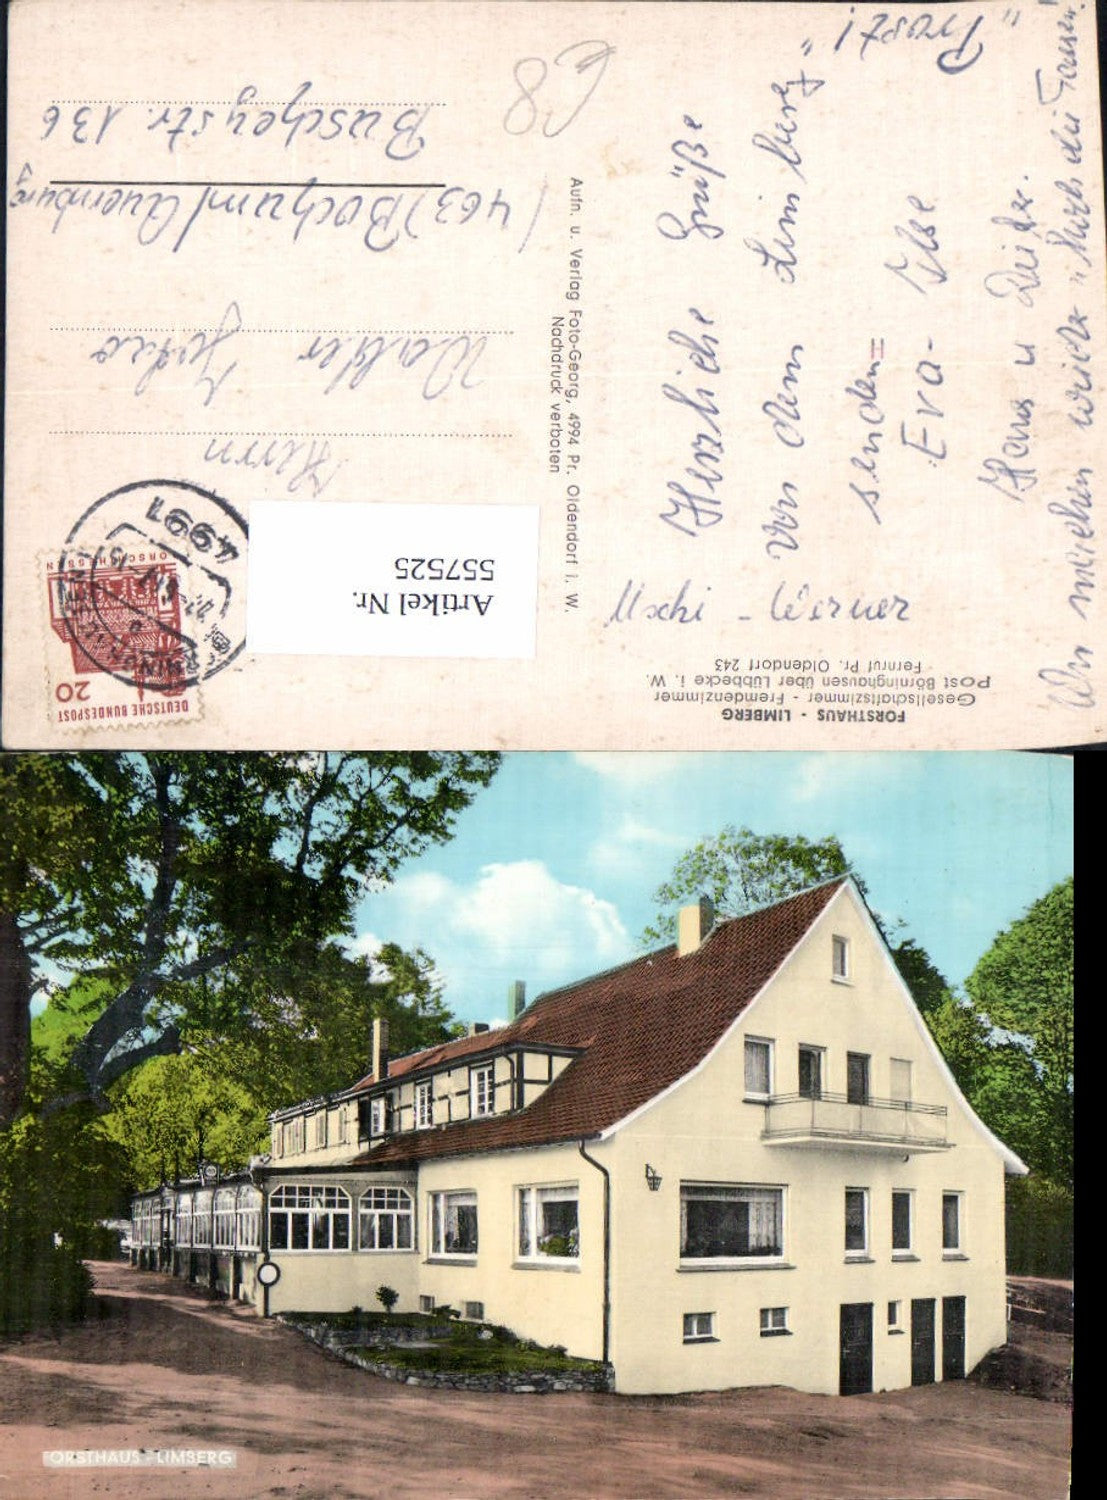 FORSTHAUS - LIMBERG
Gesellschaftszimmer - Fremdenzimmer
Post Börninghausen über Lübbecke i. W.
Fernruf Pr. Oldendorf 243
Herzliche Grüße
von dem Limberg
senden
Eva - Ilse
Hans u
Uschi - Werner
Wir machen wieder
"Prost!"
Aufn. u. Verlag Foto-Georg, 4994 Pr. Oldendorf i. W.
Nachdruck verboten
DEUTSCHE BUNDESPOST
20
LORSCH/HESSEN
4991
Herrn
Walter
(463) Bochum/Querenburg
Buscheystr. 136
68
Artikel Nr.
557525
FORSTHAUS - LIMBERG